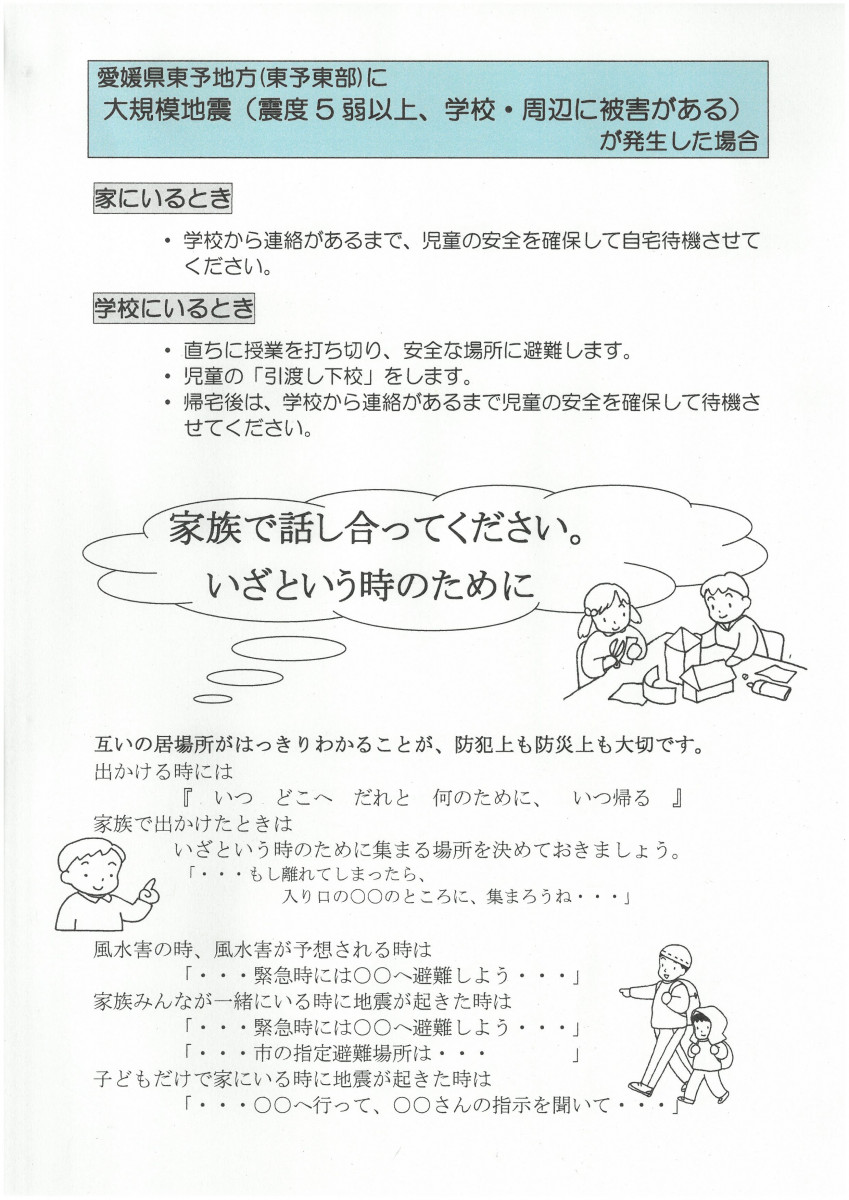 愛媛県東予地方(東予東部)に
大規模地震（震度５弱以上、学校・周辺に被害がある）
が発生した場合
家にいるとき
・ 学校から連絡があるまで、児童の安全を確保して自宅待機させて
ください。
学校にいるとき
・ 直ちに授業を打ち切り、安全な場所に避難します。
・ 児童の「引渡し下校」をします。
・ 帰宅後は、学校から連絡があるまで児童の安全を確保して待機さ
せてください。
家族で話し合ってください。
いざという時のために
互いの居場所がはっきりわかることが、防犯上も防災上も大切です。
出かける時には
『　いつ　どこへ　だれと　何のために、　いつ帰る　』
家族で出かけたときは
いざという時のために集まる場所を決めておきましょう。
「・・・もし離れてしまったら、
入り口の〇〇のところに、集まろうね・・・」
風水害の時、風水害が予想される時は
「・・・緊急時には〇〇へ避難しよう・・・」
家族みんなが一緒にいる時に地震が起きた時は
「・・・緊急時には〇〇へ避難しよう・・・」
「・・・市の指定避難場所は・・・　　　　」
子どもだけで家にいる時に地震が起きた時は
「・・・〇〇へ行って、〇〇さんの指示を聞いて・・・」